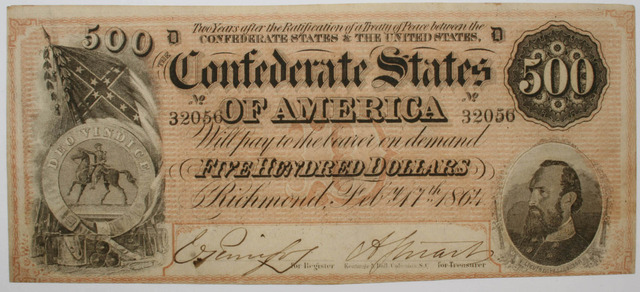 Two Years after the Ratification of a Treaty of Peace between the
CONFEDERATE STATES & THE UNITED STATES,
500 D D
THE
Confederate States 500
OF AMERICA
No 32056 No 32056
Will pay to the bearer on demand
DEO VINDICE
FIVE HUNDRED DOLLARS
Richmond, Feby. 17th 1864
for Register Keatinge & Ball, Columbia, S.C. for Treasurer